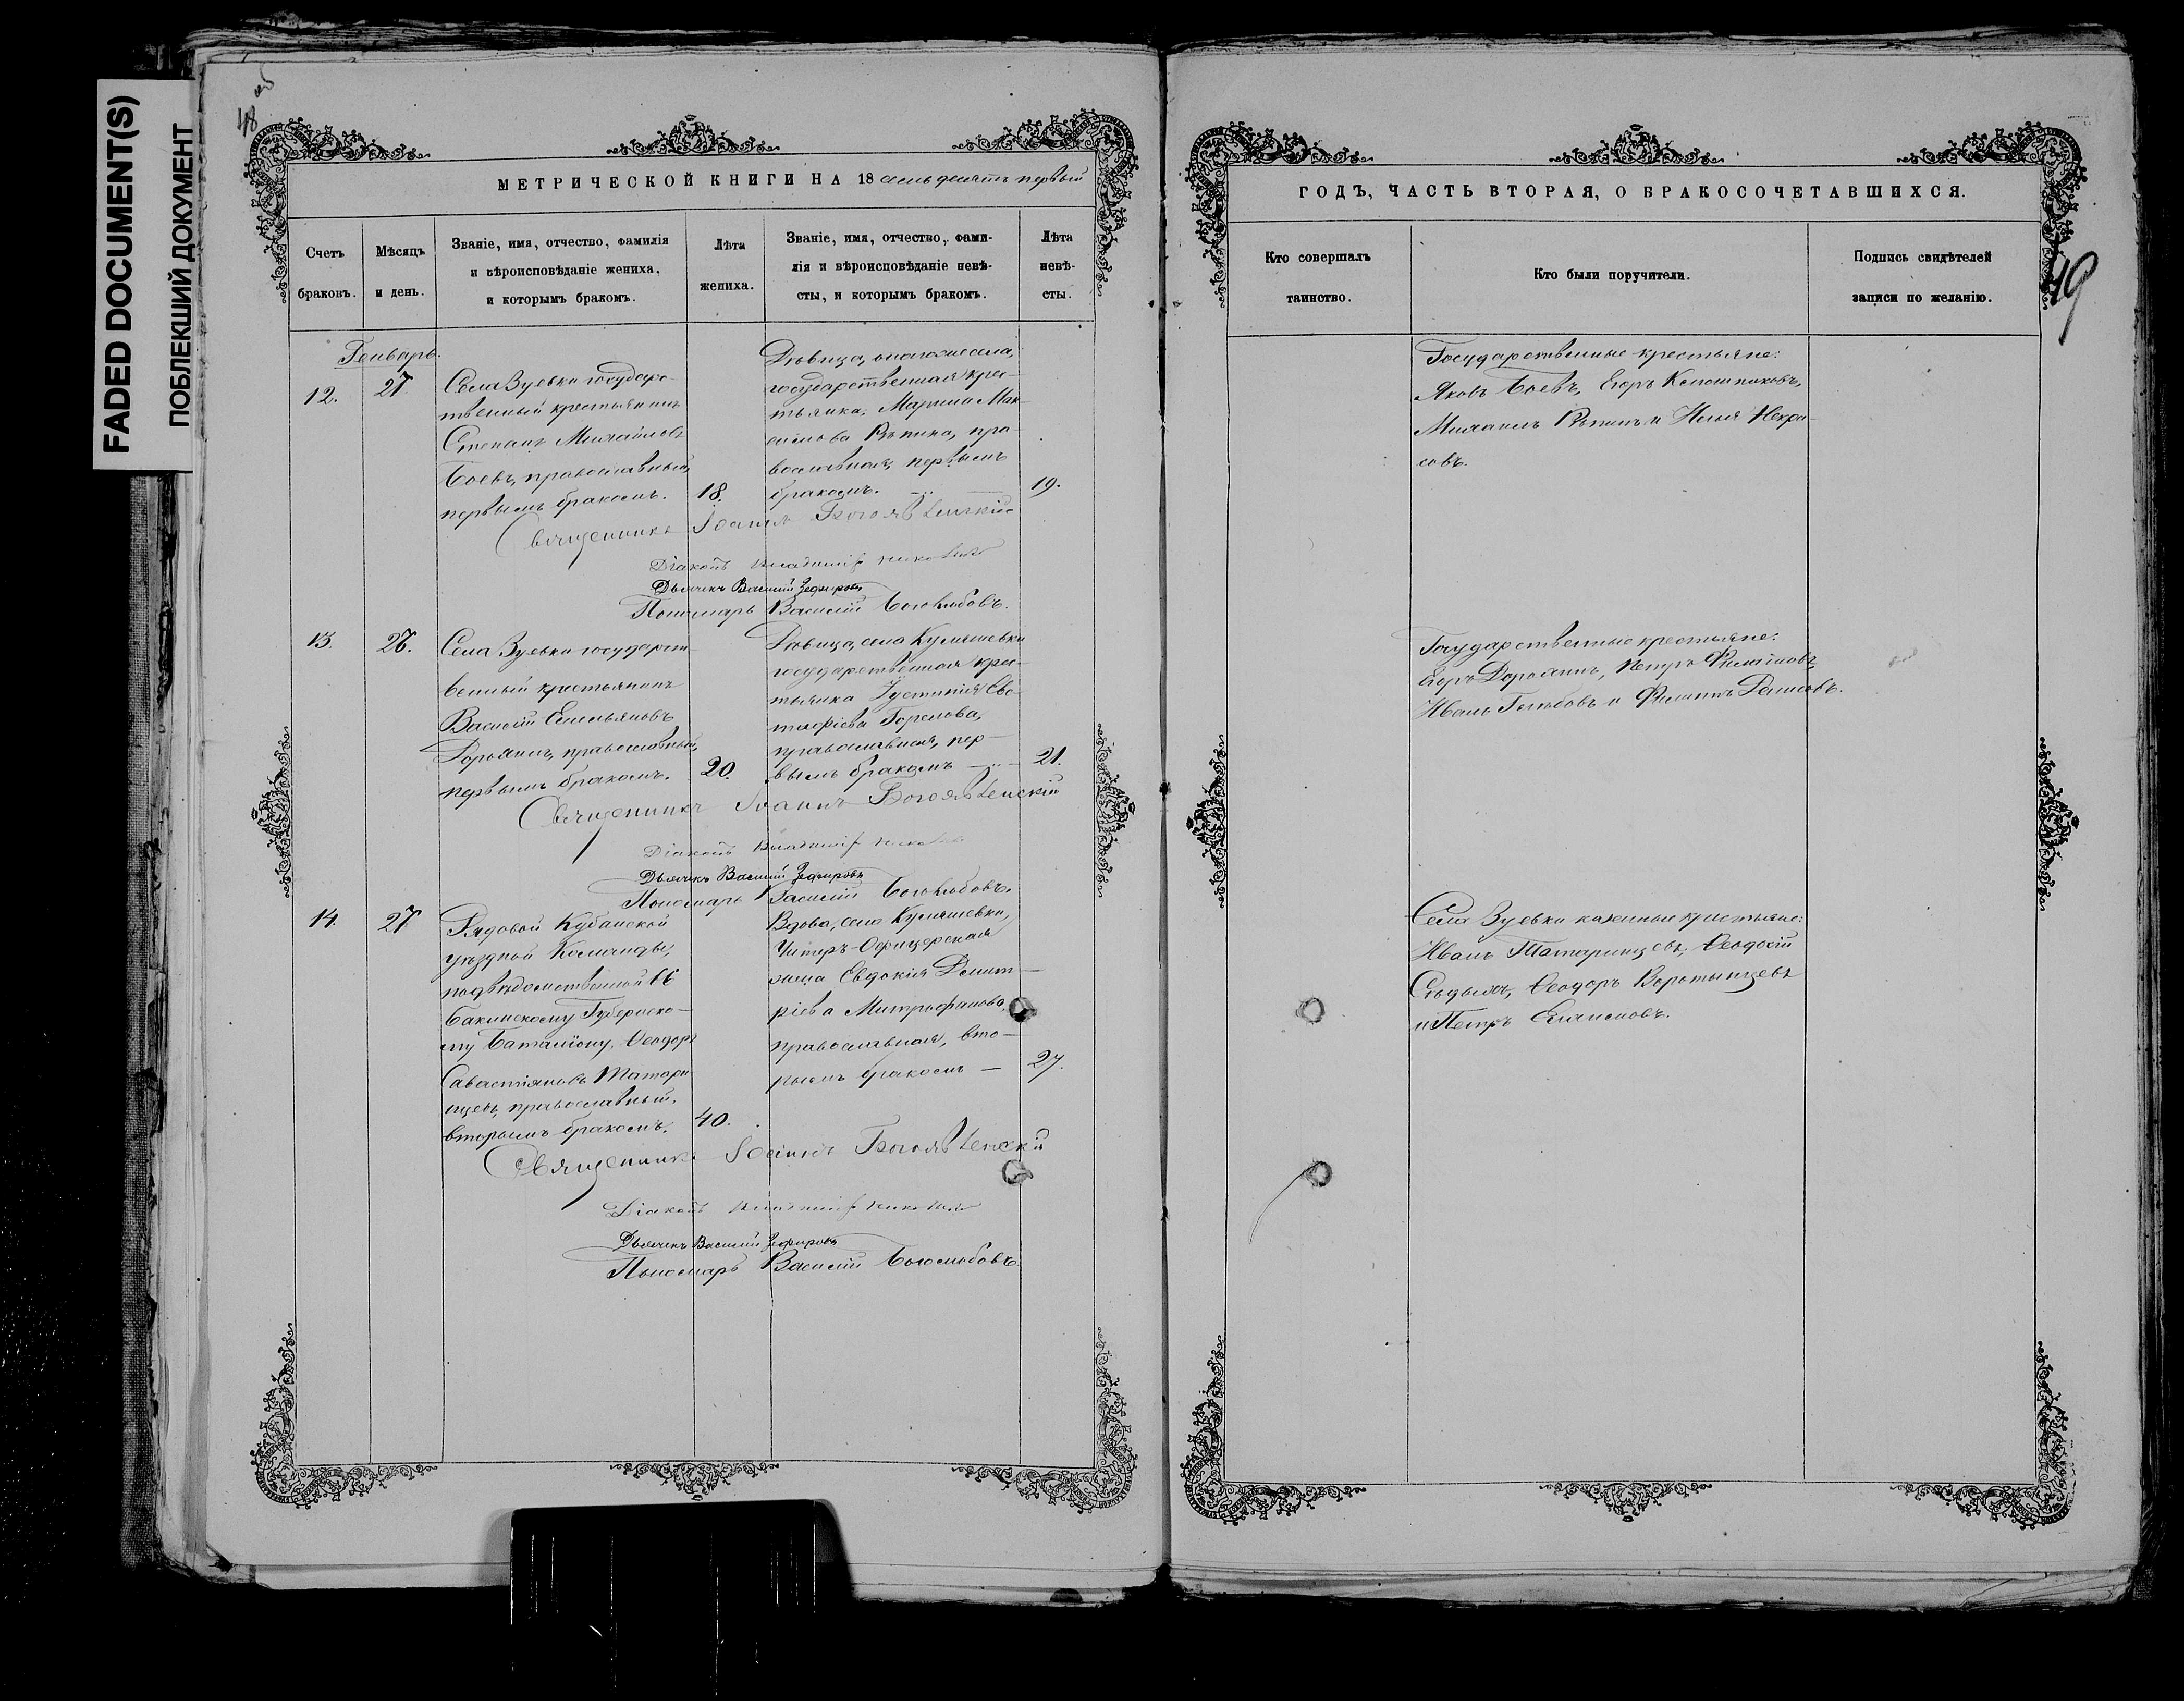 FADED DOCUMENT(S)
ПОБЛЕКШИЙ ДОКУМЕНТ
48 об
МЕТРИЧЕСКОЙ КНИГИ НА 18 семьдесятъ первый
Счетъ
браковъ.
Мѣсяцъ
и день.
Званіе, имя, отчество, фамилія
и вѣроисповѣданіе жениха,
и которымъ бракомъ.
Лѣта
жениха.
Званіе, имя, отчество, фами-
лія и вѣроисповѣданіе невѣ-
сты, и которымъ бракомъ.
Лѣта
невѣ-
сты.
Генварь.
12.
27
Села Зуевки государс-
твенный крестьянинъ
Степанъ Михайловъ
Боевъ, православный,
первымъ бракомъ.
18.
Дѣвица, онагоже села,
государственная крес-
тьянка, Марина Мак-
симова Рѣпина, пра-
вославная, первымъ
бракомъ.
19.
Священникъ Іоаннъ Богоявленскій
Діаконъ Владимір
Дьячекъ Василій Зефировъ
Пономарь Василій Боголюбовъ.
13.
27.
Села Зуевки государст
венный крестьянинъ
Василій Емельяновъ
Дорохинъ, православный,
первымъ бракомъ.
20.
Дѣвица, села Кулешевки
государственная крес-
тьянка Іустинія Евс-
тафіева Горлова,
православная, пер-
вымъ бракомъ
21.
Священникъ Іоаннъ Богоявленскій
Діаконъ Владимір
Дьячекъ Василій Зефировъ
Пономарь Василій Боголюбовъ.
14.
27
Рядовой Кубанской
уѣздной Команды,
подвѣдомственной 16
Бакинскому Губернско-
му Баталіону, Ѳеодоръ
Савастьяновъ Татари
нцевъ, православный,
вторымъ бракомъ.
40.
Вдова, села Кулешевки,
Унтеръ-Офицерская
жена Евдокія Димит-
ріева Митрофанова,
православная, вто-
рымъ бракомъ —
27.
Священникъ Іоаннъ Богоявленскій
Діаконъ Владимір
Дьячекъ Василій Зефировъ
Пономарь Василій Боголюбовъ
ГОДЪ, ЧАСТЬ ВТОРАЯ, О БРАКОСОЧЕТАВШИХСЯ.
49
Кто совершалъ
таинство.
Кто были поручители.
Подпись свидѣтелей
записи по желанію.
Государственные крестьяне:
Яковъ Боевъ, Егоръ Калошниковъ,
Михаилъ Рѣпинъ и Илья Некра-
совъ.
Государственные крестьяне:
Егоръ Дорохинъ, Петръ Филиповъ,
Иванъ Глѣбовъ и Филиппъ Денисовъ.
Села Зуевки казенные крестьяне:
Иванъ Татаринцевъ, Ѳеодосій
Сѣдыхъ, Ѳеодоръ Воротынцевъ
и Петръ